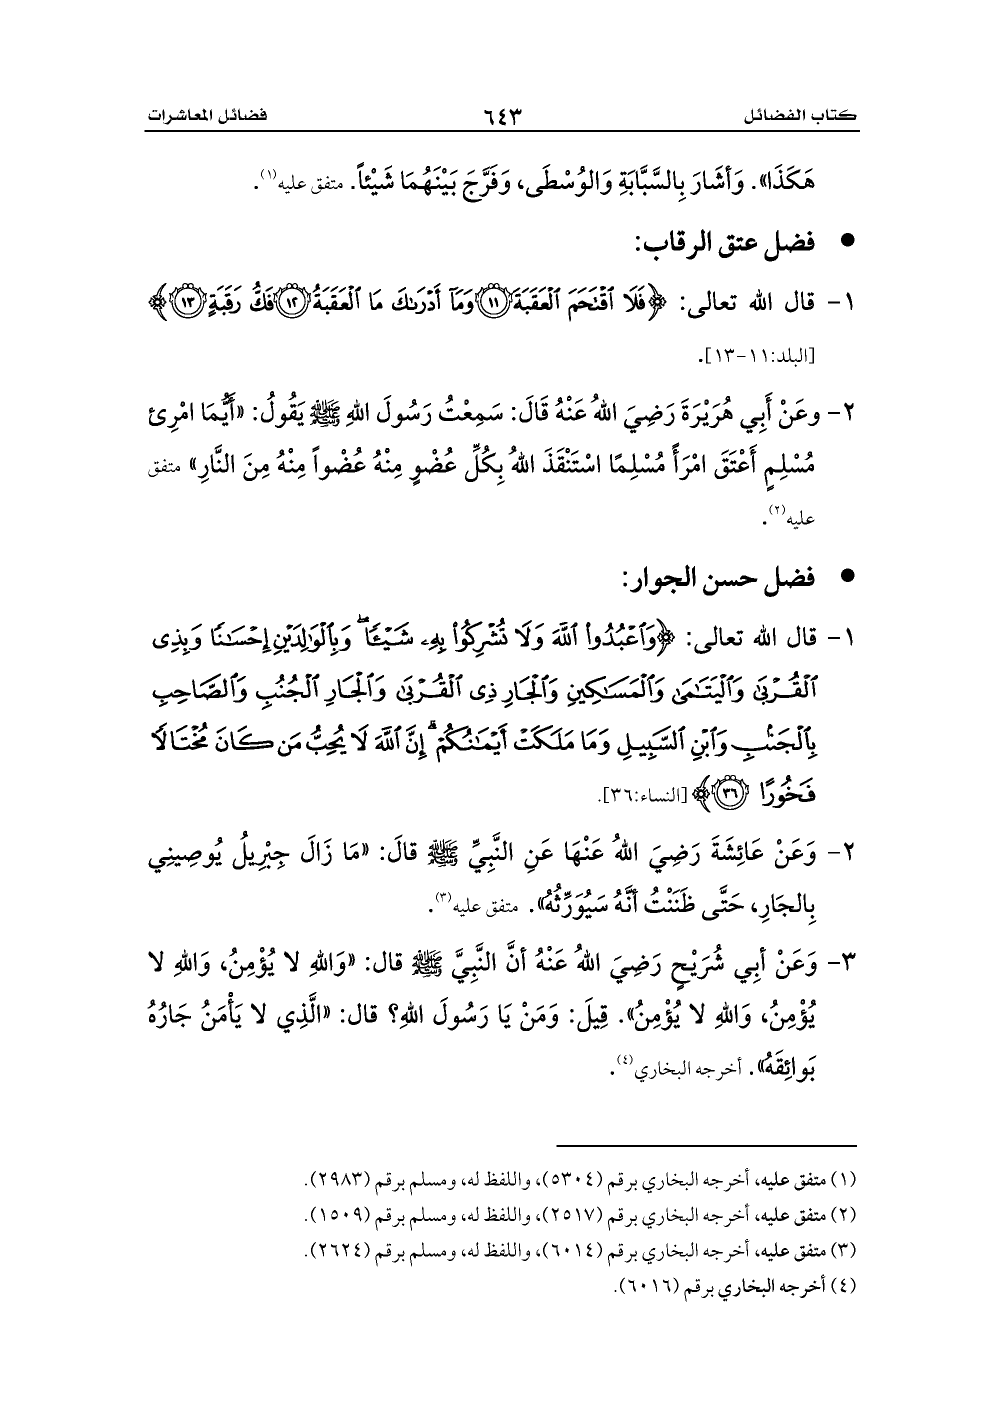 كتاب الفضائل ٦٤٣ فضائل المعاشرات
هَكَذَا». وَأشَارَ بِالسَّبَّابَةِ وَالوُسْطَى، وَفَرَّجَ بَيْنَهُمَا شَيْئاً. متفق عليه(١).
● فضل عتق الرقاب:
١- قال الله تعالى: ﴿فَلَا ٱقۡتَحَمَ ٱلۡعَقَبَةَ ١١ وَمَآ أَدۡرَىٰكَ مَا ٱلۡعَقَبَةُ ١٢ فَكُّ رَقَبَةٍ ١٣﴾
[البلد:١١-١٣].
٢- وعَنْ أَبِي هُرَيْرَةَ رَضِيَ اللهُ عَنْهُ قَالَ: سَمِعْتُ رَسُولَ اللهِ ﷺ يَقُولُ: «أَيُّمَا امْرِئ
مُسْلِمٍ أَعْتَقَ امْرَأً مُسْلِمًا اسْتَنْقَذَ اللهُ بِكُلِّ عُضْوٍ مِنْهُ عُضْواً مِنْهُ مِنَ النَّارِ» متفق
عليه(٢).
● فضل حسن الجوار:
١- قال الله تعالى: ﴿وَٱعۡبُدُواْ ٱللَّهَ وَلَا تُشۡرِكُواْ بِهِۦ شَيۡـٔٗاۖ وَبِٱلۡوَٰلِدَيۡنِ إِحۡسَٰنٗا وَبِذِى
ٱلۡقُرۡبَىٰ وَٱلۡيَتَٰمَىٰ وَٱلۡمَسَٰكِينِ وَٱلۡجَارِ ذِى ٱلۡقُرۡبَىٰ وَٱلۡجَارِ ٱلۡجُنُبِ وَٱلصَّاحِبِ
بِٱلۡجَنۢبِ وَٱبۡنِ ٱلسَّبِيلِ وَمَا مَلَكَتۡ أَيۡمَٰنُكُمۡۗ إِنَّ ٱللَّهَ لَا يُحِبُّ مَن كَانَ مُخۡتَالٗا
فَخُورًا ٣٦﴾ [النساء:٣٦].
٢- وَعَنْ عَائِشَةَ رَضِيَ اللهُ عَنْهَا عَنِ النَّبِيِّ ﷺ قالَ: «مَا زَالَ جِبْرِيلُ يُوصِينِي
بِالجَارِ، حَتَّى ظَنَنْتُ أنَّهُ سَيُوَرِّثُهُ». متفق عليه(٣).
٣- وَعَنْ أبِي شُرَيْحٍ رَضِيَ اللهُ عَنْهُ أنَّ النَّبِيَّ ﷺ قال: «وَاللهِ لا يُؤْمِنُ، وَاللهِ لا
يُؤْمِنُ، وَاللهِ لا يُؤْمِنُ». قِيلَ: وَمَنْ يَا رَسُولَ اللهِ؟ قال: «الَّذِي لا يَأْمَنُ جَارُهُ
بَوائِقَهُ». أخرجه البخاري(٤).
(١) متفق عليه، أخرجه البخاري برقم (٥٣٠٤)، واللفظ له، ومسلم برقم (٢٩٨٣).
(٢) متفق عليه، أخرجه البخاري برقم (٢٥١٧)، واللفظ له، ومسلم برقم (١٥٠٩).
(٣) متفق عليه، أخرجه البخاري برقم (٦٠١٤)، واللفظ له، ومسلم برقم (٢٦٢٤).
(٤) أخرجه البخاري برقم (٦٠١٦).